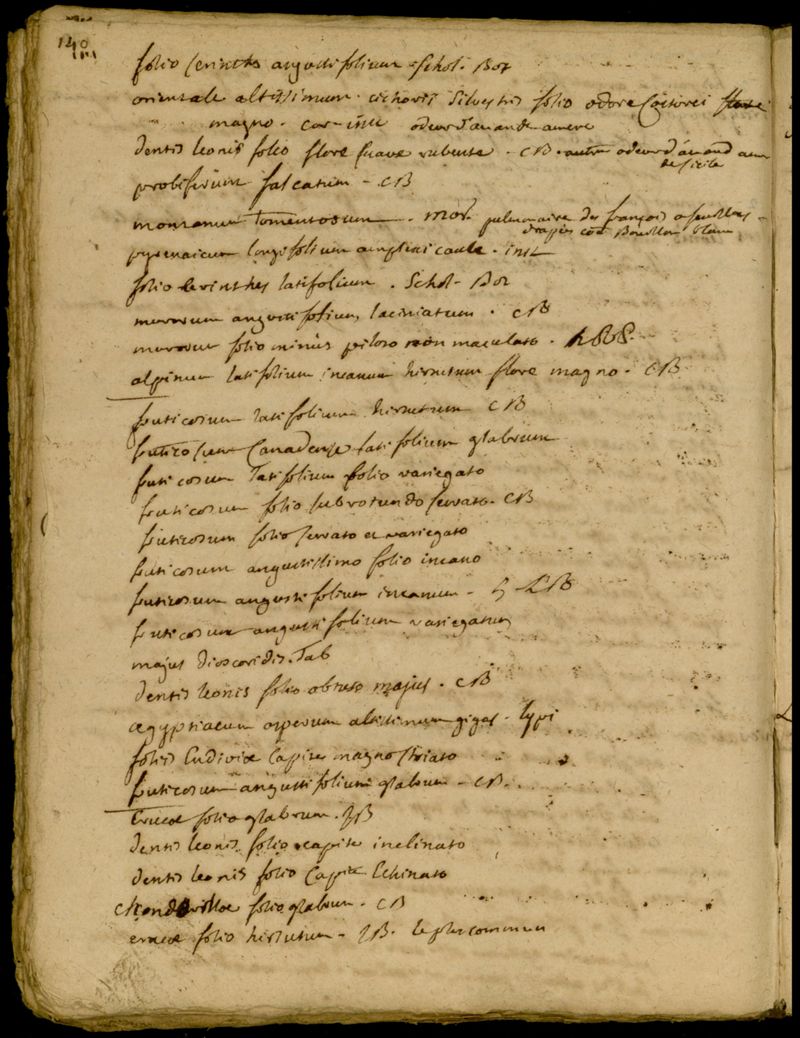 140
folio cerinthes angustifolium - Schol. Bot
orientale altissimum. cichorii silvestris folio odore Castorei flore
magno. cor. inst odeur d'amande amere
dentis leonis folio flore suave rubente - CB. autre odeur d'amand amer
de sicile
probiferum falcatum - CB
montanum tomentosum - mor. pulmonaire des françois a feuilles
drapées come Bouillon blanc
pyrenaicum longifolium amplexicaule - inst
folio cerinthes latifolium. Schol. Bot
murorum angustifolium laciniatum. CB
murorum folio minus piloso non maculato.
alpinum latifolium incanum hirsutum flore magno. CB
fruticosum latifolium hirsutum CB
fruticosum Canadense latifolium glabrum
fruticosum latifolium folio variegato
fruticosum folio subrotundo serrato. CB
fruticosum folio serrato et variegato
fruticosum angustissimo folio incano
fruticosum angustifolium incanum -
fruticosum angustifolium variegatum
majus dioscoridis. Tab
dentis leonis folio obtuso majus. CB
ægyptiacum asperum altissimum gigas. lypi
foliis Endiviæ capite magno striato
fruticosum angustifolium glabrum - CB.
erucæ folio glabrum. JB
dentis leonis folio capite inclinato
dentis leonis folio Capite Echinato
chondrillæ folio glabrum. CB
erucæ folio hirsutum - JB. le plus commun